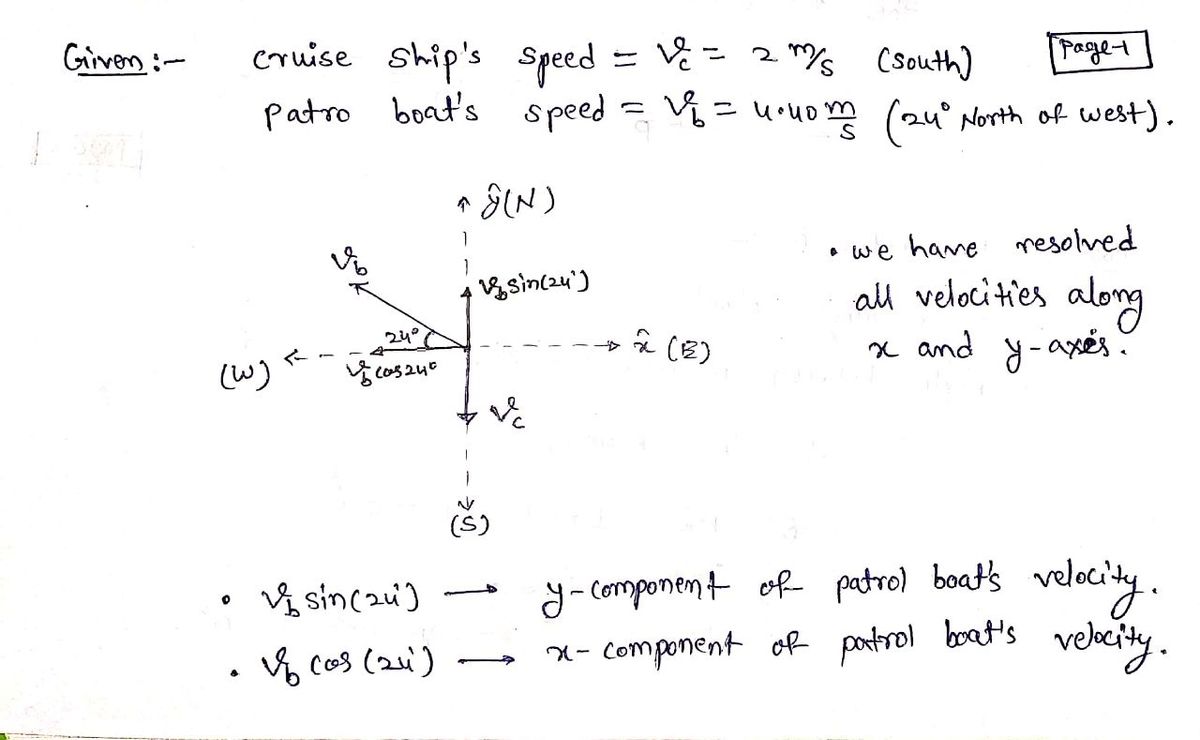 Given :-
cruise ship's speed = Vc = 2 m/s (south)
Page-1
Patro boat's speed = Vb = 4.40 m/s (24° North of west).
ŷ(N)
Vb
Vb sin(24°)
24°
x̂ (E)
(W)
Vb cos24°
Vc
(S)
• we have resolved
all velocities along
x and y-axes.
• Vb sin(24°) → y-component of patrol boat's velocity.
• Vb cos(24°) → x-component of patrol boat's velocity.